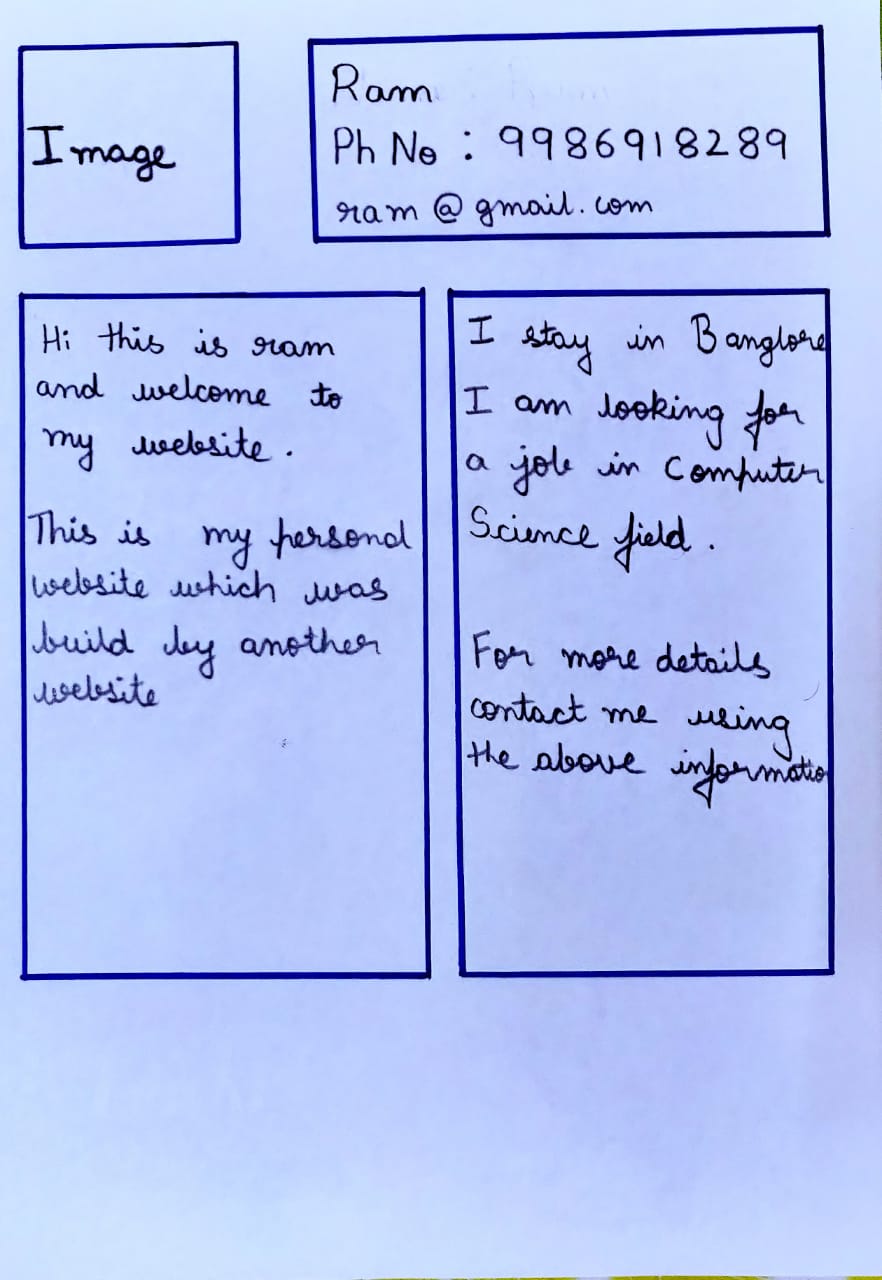 Image
Ram
Ph No : 9986918289
ram @ gmail.com
Hi this is ram
and welcome to
my website.
This is my personal
website which was
build by another
website
I stay in Banglore
I am looking for
a job in Computer
Science field.
For more details
contact me using
the above informatio